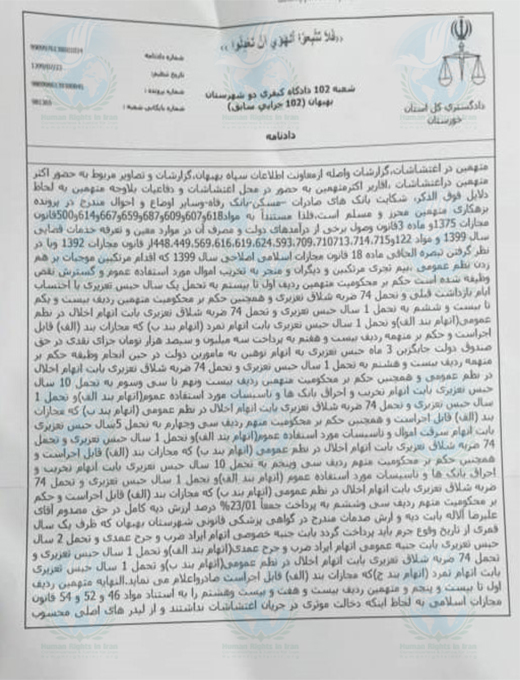 «فَلا تَتَّبِعُوَّا اَلهْوَيَّ اَنْ تَعدِلُوا»
دادگستری کل استان
خوزستان
شعبه 102 دادگاه کیفری دو شهرستان
بهبهان (102 جزایی سابق)
شماره دادنامه
تاریخ تنظیم:
شماره پرونده :
شماره بایگانی شعبه :
دادنامه
متهمین در اغتشاشات،گزارشات واصله ازمعاونت اطلاعات سپاه بهبهان،گزارشات و تصاویر مربوط به حضور اکثر
متهمین دراغتشاشات ،اقاریر اکثرمتهمین به حضور در محل اغتشاشات و دفاعیات بلاوجه متهمین به لحاظ
دلایل فوق الذکر، شکایت بانک های صادرات –مسکن-بانک رفاه-وسایر اوضاع و احوال مندرج در پرونده
بزهکاری متهمین محرز و مسلم است،فلذا مستنداً به مواد618و607و609و687و659و667و614و500قانون
مجازات 1375و ماده 3قانون وصول برخی از درآمدهای دولت و مصرف آن در موارد معین و تعرفه خدمات قضایی
سال 1399 و مواد 122و448.449.569.616.619.624.593.709.710713.714.715از قانون مجازات 1392 وبا در
نظر گرفتن تبصره الحاقی ماده 18 قانون مجازات اسلامی اصلاحی سال 1399 که اقدام مرتکبین موجبات بر هم
زدن نظم عمومی ،بیم تجری مرتکبین و دیگران و منجر به تخریب اموال مورد استفاده عموم و گسترش نقض
وظیفه شده است حکم بر محکومیت متهمین ردیف اول تا بیستم به تحمل یک سال حبس تعزیری با احتساب
ایام بازداشت قبلی و تحمل 74 ضربه شلاق تعزیری و همچنین حکم بر محکومیت متهمین ردیف بیست و یکم
تا بیست و ششم به تحمل 1 سال حبس تعزیری و تحمل 74 ضربه شلاق تعزیری بابت اتهام اخلال در نظم
عمومی(اتهام بند الف)و تحمل 1 سال حبس تعزیری بابت اتهام تمرد (اتهام بند ب) که مجازات بند (الف) قابل
اجراست و حکم بر متهمه ردیف بیست و هفتم به پرداخت سه میلیون و سیصد هزار تومان جزای نقدی در حق
صندوق دولت جایگزین 3 ماه حبس تعزیری به اتهام توهین به مامورین دولت در حین انجام وظیفه حکم بر
متهمه ردیف بیست و هشتم به تحمل 1 سال حبس تعزیری و تحمل 74 ضربه شلاق تعزیری بابت اتهام اخلال
در نظم عمومی و همچنین حکم بر محکومیت متهمین ردیف بیست ونهم تا سی وسوم به تحمل 10 سال
حبس تعزیری بابت اتهام تخریب و احراق بانک ها و تاسیسات مورد استفاده عموم(اتهام بند الف)و تحمل 1
سال حبس تعزیری و تحمل 74 ضربه شلاق تعزیری بابت اتهام اخلال در نظم عمومی (اتهام بند ب) که مجازات
بند (الف) قابل اجراست و همچنین حکم بر محکومیت متهم ردیف سی وچهارم به تحمل 5سال حبس تعزیری
بابت اتهام سرقت اموال و تاسیسات مورد استفاده عموم(اتهام بند الف)و تحمل 1 سال حبس تعزیری و تحمل
74 ضربه شلاق تعزیری بابت اتهام اخلال در نظم عمومی (اتهام بند ب) که مجازات بند (الف) قابل اجراست و
همچنین حکم بر محکومیت متهم ردیف سی وپنجم به تحمل 10 سال حبس تعزیری بابت اتهام تخریب و
احراق بانک ها و تاسیسات مورد استفاده عموم (اتهام بند الف)و تحمل 1 سال حبس تعزیری و تحمل 74
ضربه شلاق تعزیری بابت اتهام اخلال در نظم عمومی (اتهام بند ب) که مجازات بند (الف) قابل اجراست و حکم
بر محکومیت متهم ردیف سی وششم به پرداخت جمعاً 23/01% درصد ارزش دیه کامل در حق مصدوم آقای
علیرضا آلاله بابت دیه و ارش صدمات مندرج در گواهی پزشکی قانونی شهرستان بهبهان که ظرف یک سال
قمری از تاریخ وقوع جرم باید پرداخت گردد بابت جنبه خصوصی اتهام ایراد ضرب و جرح عمدی و تحمل 2 سال
حبس تعزیری بابت جنبه عمومی اتهام ایراد ضرب و جرح عمدی(اتهام بند الف)و تحمل 1 سال حبس تعزیری و
تحمل 74 ضربه شلاق تعزیری بابت اتهام اخلال در نظم عمومی(اتهام بند ب)و تحمل 1 سال حبس تعزیری
بابت اتهام تمرد (اتهام بند ج)که مجازات بند (الف) قابل اجراست صادرواعلام می نماید.النهایه متهمین ردیف
اول تا بیست و پنجم و متهمین ردیف بیست و هفت و بیست وهشتم را به استناد مواد 46 و 52 و 54 قانون
مجازات اسلامی به لحاظ اینکه دخالت موثری در جریان اغتشاشات نداشتند و از لیدر های اصلی محسوب